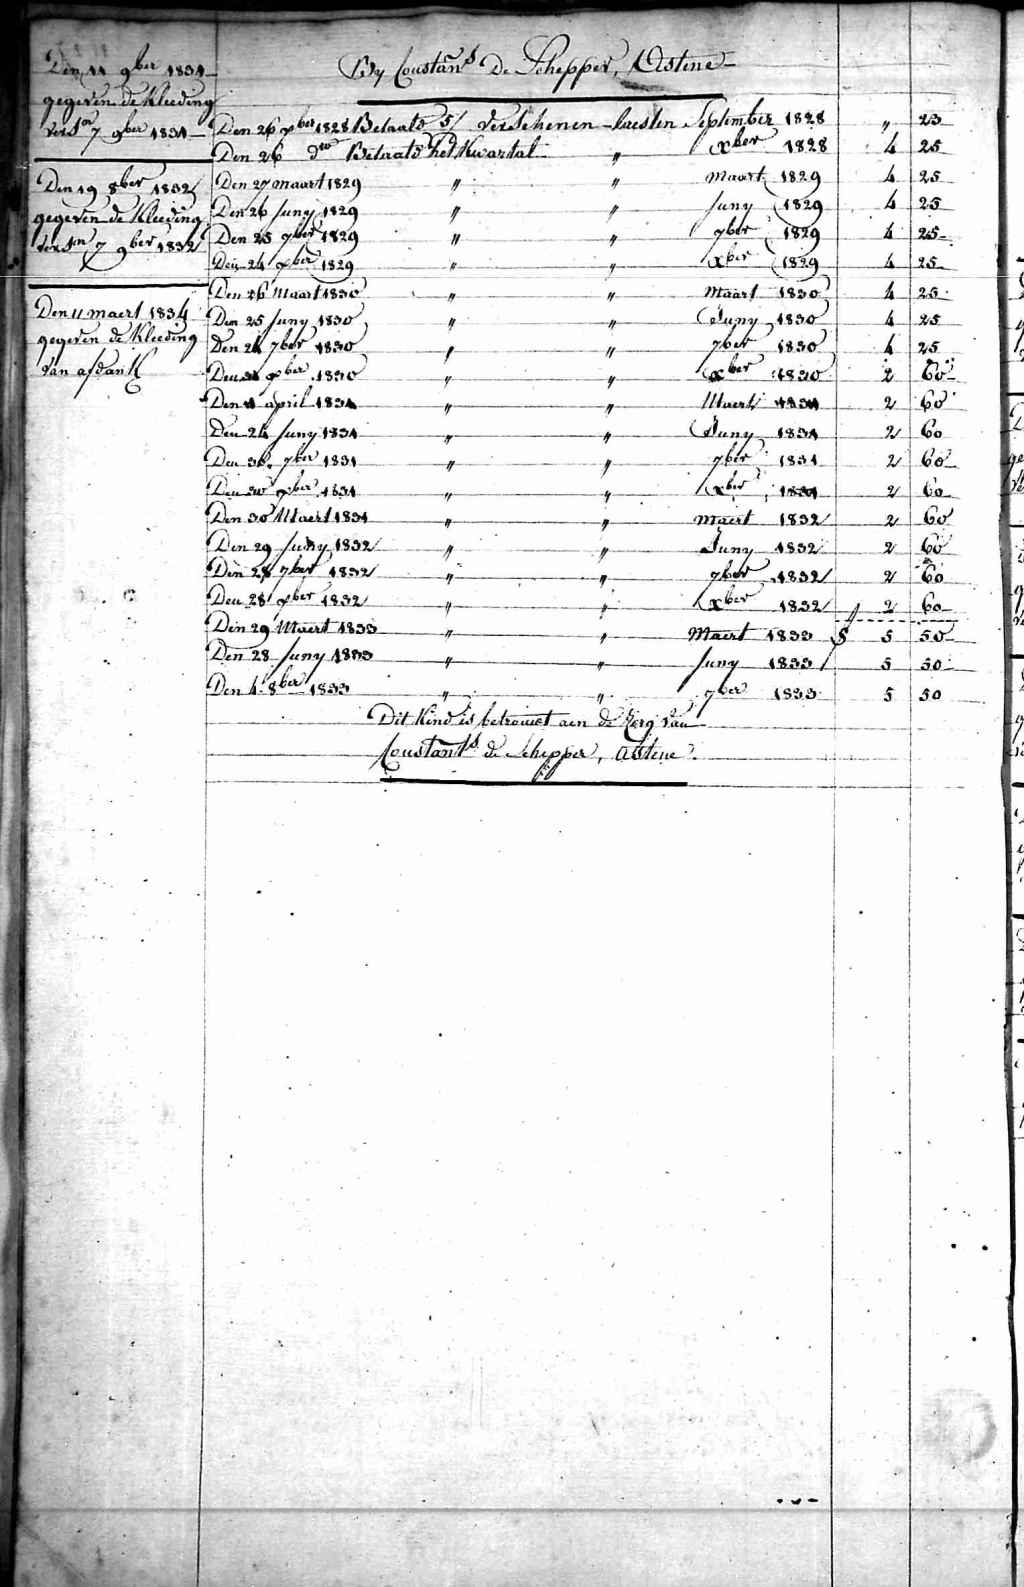 Den 11 9ber 1831
gegeven de Kleeding
versn 7 9ber 1831
Den 19 8ber 1832
gegeven de Kleeding
versn 7 9ber 1832
Den 11 maert 1834
gegeven de Kleeding
van afdank
By Constans De Schepper, Astene
Den 26 xber 1828 Betaald 5/ verschenen laesten September 1828 " 25
Den 26 do Betaald het Kwartal " xber 1828 4 25
Den 27 maart 1829 " " Maart 1829 4 25
Den 26 Juny 1829 " " Juny 1829 4 25
Den 25 7ber 1829 " " 7ber 1829 4 25
Den 24 xber 1829 " " xber 1829 4 25
Den 26 Maart 1830 " " Maart 1830 4 25
Den 25 Juny 1830 " " Juny 1830 4 25
Den 24 7ber 1830 " " 7ber 1830 4 25
Den 31 xber 1830 " " xber 1830 2 60
Den 11 april 1831 " " Maert 1831 2 60
Den 24 Juny 1831 " " Juny 1831 2 60
Den 30 7ber 1831 " " 7ber 1831 2 60
Den 30 xber 1831 " " xber 1831 2 60
Den 30 Maert 1831 " " Maert 1832 2 60
Den 29 Juny 1832 " " Juny 1832 2 60
Den 28 7ber 1832 " " 7ber 1832 2 60
Den 28 xber 1832 " " xber 1832 2 60
Den 29 Maert 1833 " " Maert 1833 5 50
Den 28 Juny 1833 " " Juny 1833 5 50
Den 4 8ber 1833 " " 7ber 1833 5 50
Dit Kind is betrouwt aen de Zorg van
Constants de Schepper, Astene.